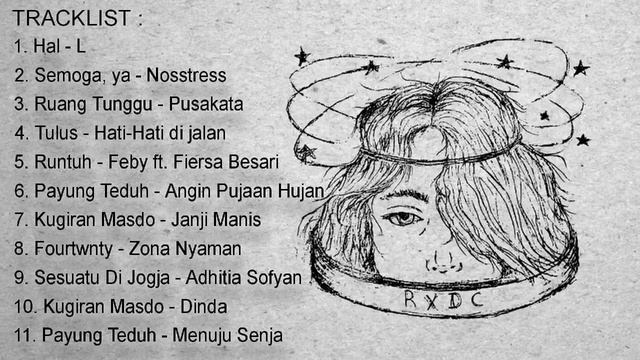 TRACKLIST :
1. Hal - L
2. Semoga, ya - Nosstress
3. Ruang Tunggu - Pusakata
4. Tulus - Hati-Hati di jalan
5. Runtuh - Feby ft. Fiersa Besari
6. Payung Teduh - Angin Pujaan Hujan
7. Kugiran Masdo - Janji Manis
8. Fourtwnty - Zona Nyaman
9. Sesuatu Di Jogja - Adhitia Sofyan
10. Kugiran Masdo - Dinda
11. Payung Teduh - Menuju Senja
RXDC